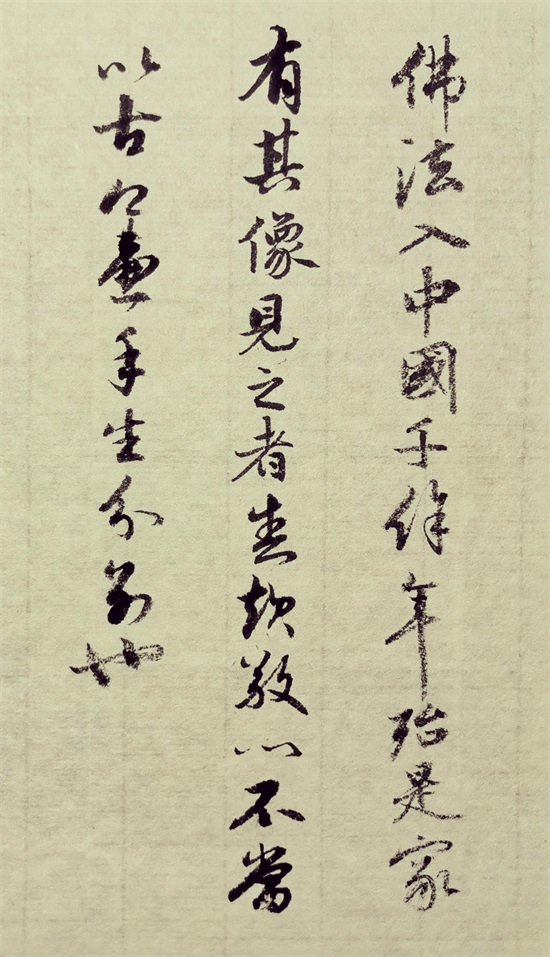 佛法入中國千餘年殆是家
有其像見之者生欽敬心不當
以古今畫手生分別也